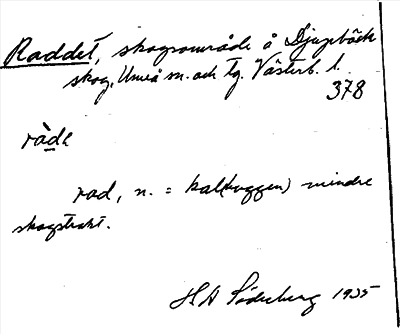 Raddet, skogsområde å Djupbäck
skog, Umeå sn. och tg. Västerb. l.
378
ràde
rad, n. = kal(huggen) mindre
skogstrakt.
H A Söderberg 1935